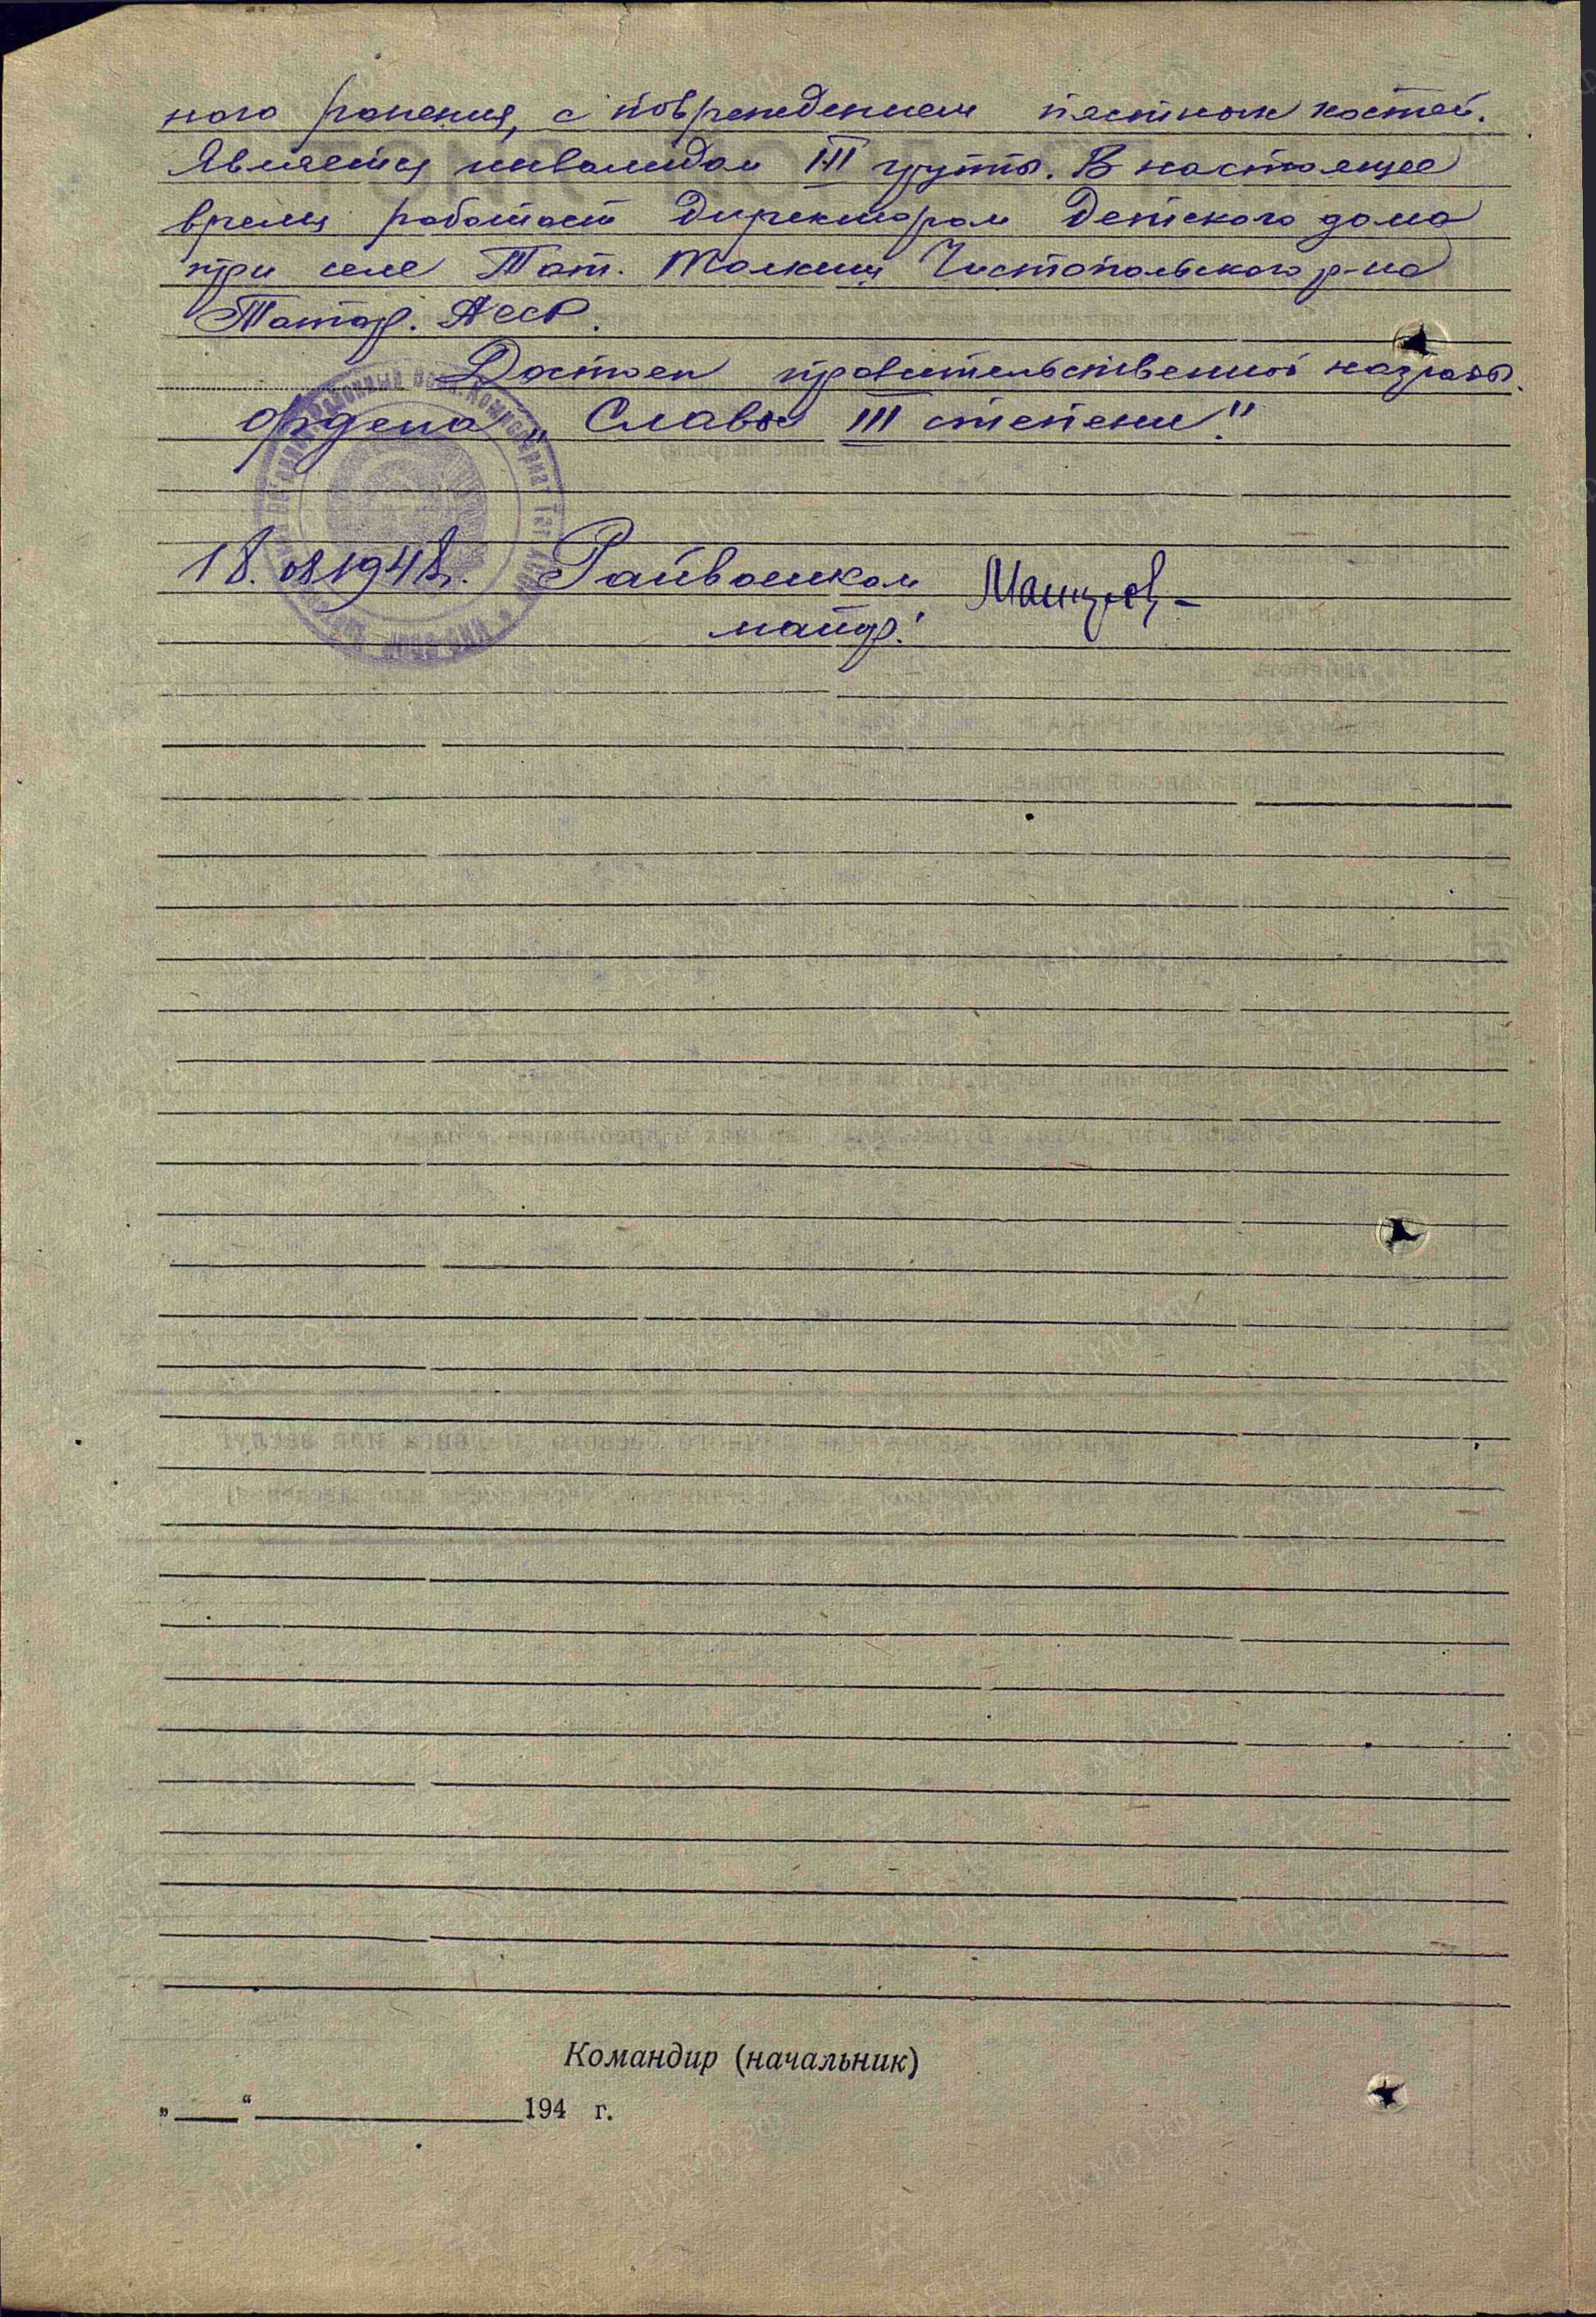 ного ранения, с повреждением пястных костей.
Является инвалидом III группы. В настоящее
время работает директором Детского дома
при селе Тат. Толкиш Чистопольского р-на
Татар. АССР.
Достоен правительственной награды
ордена „Славы III степени."
18. 08 1948г. Райвоенком
майор:
Командир (начальник)
„ “ 194 г.